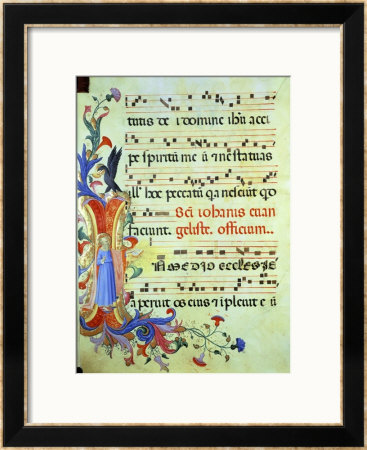 tutis de i domine ihu acci
pe spiritu me u ne statuas
ill' hoc peccatu qa nesciut qd
faciunt. Sci iohanis euan
geliste. officium..
N MEDIO ECCLESIE
aperuit os eius i ipleuit e u